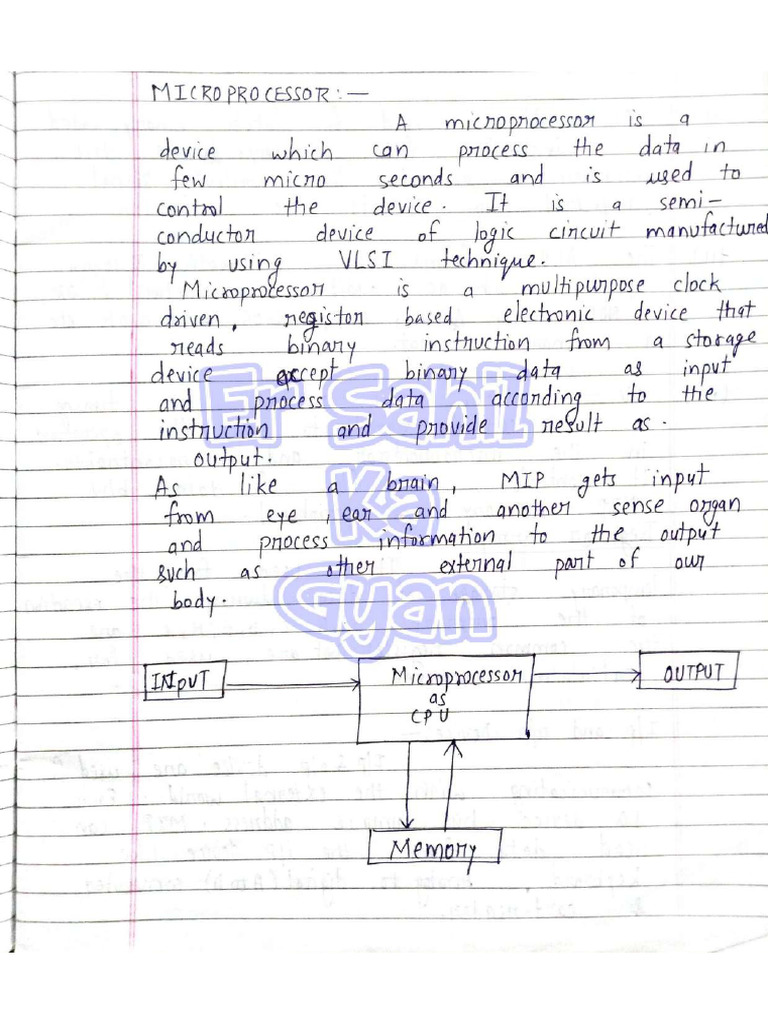 MICROPROCESSOR:—
A microprocessor is a
device which can process the data in
few micro seconds and is used to
control the device. It is a semi-
conductor device of logic circuit manufactured
by using VLSI technique.
Microprocessor is a multipurpose clock
driven, register based electronic device that
reads binary instruction from a storage
device except binary data as input
and process data according to the
instruction and provide result as.
output.
As like a brain, MIP gets input
from eye, ear and another sense organ
and process information to the output
such as other external part of our
body.
Er Sahil
Ka
Gyan
INPUT
Microprocessor
as
CPU
OUTPUT
Memory